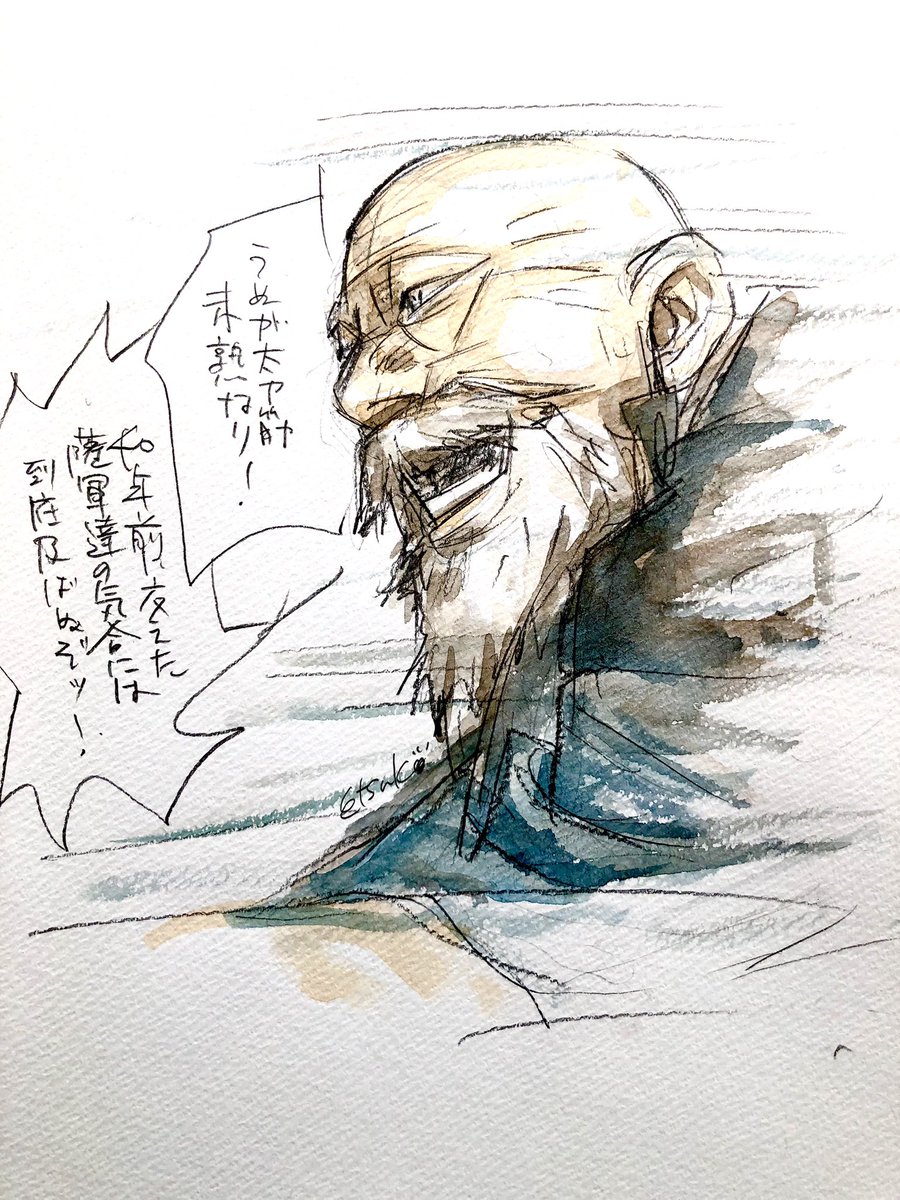 うぬが太刀筋
未熟なり!
40年前に交てた
薩軍達の気合には
到底及ばぬぞッ!
@tsukiii